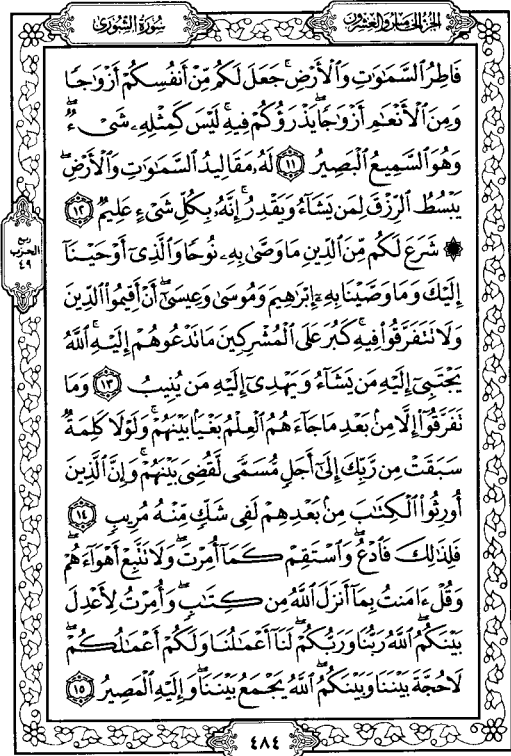 سُورَةُ الشُّورَىٰ
الجُزْءُ الخَامِسُ وَالعِشْرُونَ
فَاطِرُ السَّمَٰوَٰتِ وَالْأَرْضِ جَعَلَ لَكُم مِّنْ أَنفُسِكُمْ أَزْوَٰجًا
وَمِنَ الْأَنْعَٰمِ أَزْوَٰجًا يَذْرَؤُكُمْ فِيهِ لَيْسَ كَمِثْلِهِۦ شَىْءٌ
وَهُوَ السَّمِيعُ الْبَصِيرُ ١١ لَهُۥ مَقَالِيدُ السَّمَٰوَٰتِ وَالْأَرْضِ
يَبْسُطُ الرِّزْقَ لِمَن يَشَآءُ وَيَقْدِرُ إِنَّهُۥ بِكُلِّ شَىْءٍ عَلِيمٌ ١٢
۞ شَرَعَ لَكُم مِّنَ الدِّينِ مَا وَصَّىٰ بِهِۦ نُوحًا وَالَّذِىٓ أَوْحَيْنَآ
إِلَيْكَ وَمَا وَصَّيْنَا بِهِۦٓ إِبْرَٰهِيمَ وَمُوسَىٰ وَعِيسَىٰٓ أَنْ أَقِيمُوا الدِّينَ
وَلَا تَتَفَرَّقُوا فِيهِ كَبُرَ عَلَى الْمُشْرِكِينَ مَا تَدْعُوهُمْ إِلَيْهِ اللَّهُ
يَجْتَبِىٓ إِلَيْهِ مَن يَشَآءُ وَيَهْدِىٓ إِلَيْهِ مَن يُنِيبُ ١٣ وَمَا
تَفَرَّقُوٓا إِلَّا مِنۢ بَعْدِ مَا جَآءَهُمُ الْعِلْمُ بَغْيًۢا بَيْنَهُمْ وَلَوْلَا كَلِمَةٌ
سَبَقَتْ مِن رَّبِّكَ إِلَىٰٓ أَجَلٍ مُّسَمًّى لَّقُضِىَ بَيْنَهُمْ وَإِنَّ الَّذِينَ
أُورِثُوا الْكِتَٰبَ مِنۢ بَعْدِهِمْ لَفِى شَكٍّ مِّنْهُ مُرِيبٍ ١٤
فَلِذَٰلِكَ فَادْعُ وَاسْتَقِمْ كَمَآ أُمِرْتَ وَلَا تَتَّبِعْ أَهْوَآءَهُمْ
وَقُلْ ءَامَنتُ بِمَآ أَنزَلَ اللَّهُ مِن كِتَٰبٍ وَأُمِرْتُ لِأَعْدِلَ
بَيْنَكُمُ اللَّهُ رَبُّنَا وَرَبُّكُمْ لَنَآ أَعْمَٰلُنَا وَلَكُمْ أَعْمَٰلُكُمْ
لَا حُجَّةَ بَيْنَنَا وَبَيْنَكُمُ اللَّهُ يَجْمَعُ بَيْنَنَا وَإِلَيْهِ الْمَصِيرُ ١٥
ربع
الحزب
٤٩
٤٨٤